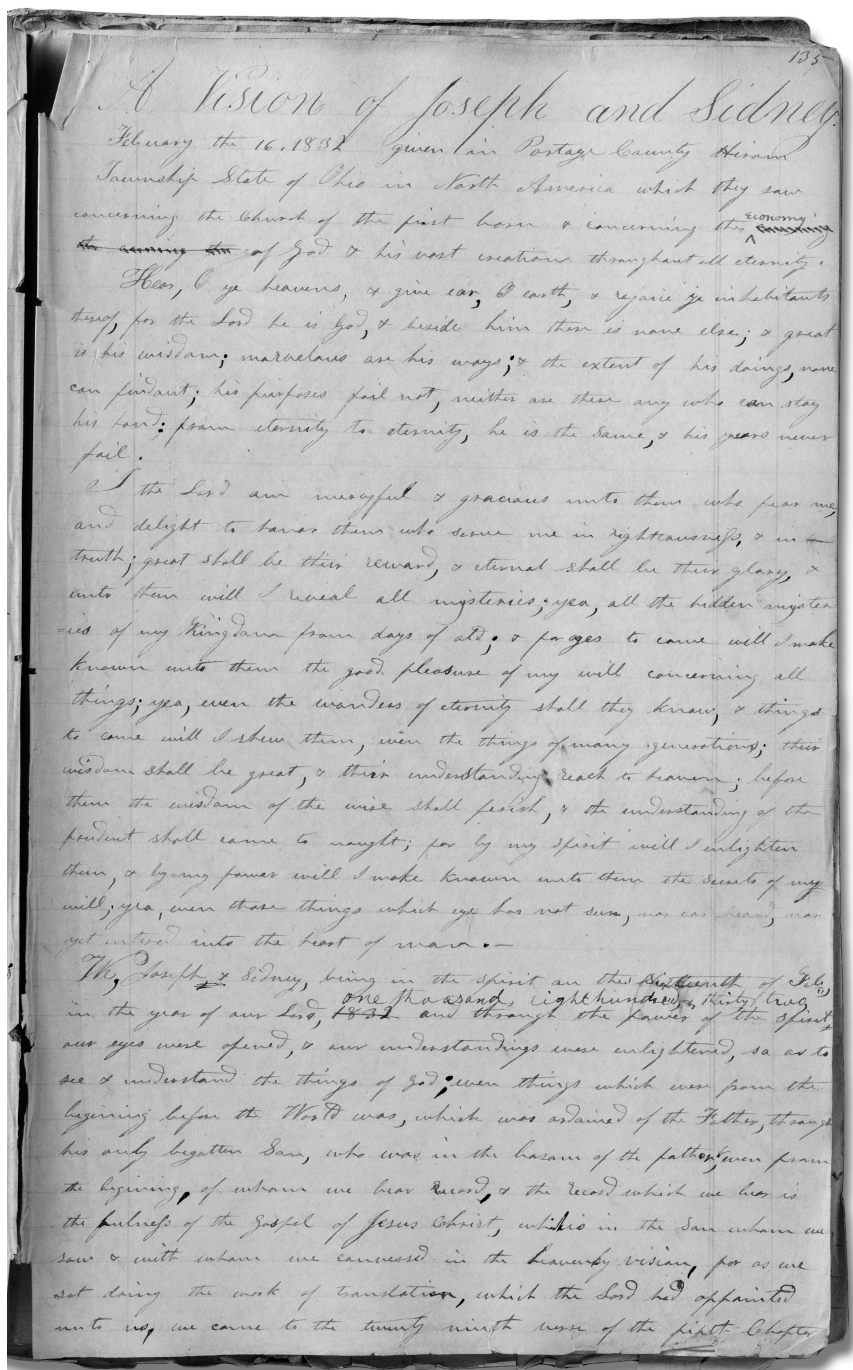 135
A Vision of Joseph and Sidney.
February the 16. 1832 given in Portage County Hiram
Township State of Ohio in North America which they saw
concerning the Church of the first born & concerning the economy
of God & his vast creation throughout all eternity.
Hear, O ye heavens, & give ear, O earth, & rejoice ye inhabitants
thereof, for the Lord he is God, & beside him there is none else; & great
is his wisdom; marvelous are his ways; & the extent of his doings, none
can find out; his purposes fail not, neither are there any who can stay
his hand: from eternity to eternity, he is the same, & his years never
fail.
I the Lord am merciful & gracious unto them who fear me,
and delight to honor them who serve me in righteousness, & in —
truth; great shall be their reward, & eternal shall be their glory, &
unto them will I reveal all mysteries; yea, all the hidden myster
=ies of my Kingdom from days of old; & for ages to come will I make
known unto them the good pleasure of my will concerning all
things; yea, even the wonders of eternity shall they know, & things
to come will I shew them, even the things of many generations; their
wisdom shall be great, & their understanding reach to heaven; before
them the wisdom of the wise shall perish, & the understanding of the
prudent shall come to naught; for by my spirit will I enlighten
them, & by my power will I make known unto them the secrets of my
will; yea, even those things which eye has not seen, nor ear heard, nor
yet entered into the heart of man. —
We, Joseph & Sidney, being in the spirit on the sixteenth of Feb.
one thousand eight hundred & thirty two
in the year of our Lord, 1832 and through the power of the spirit,
our eyes were opened, & our understandings were enlightened, so as to
see & understand the things of God; even things which were from the
begining before the World was, which was ordained of the Father, through
his only begotten Son, who was in the bosom of the father, even from
the begining, of whom we bear record, & the record which we bear is
the fulness of the Gospel of Jesus Christ, who is in the Son whom we
saw & with whom we conversed in the heavenly vision, for as we
sat doing the work of translation, which the Lord had appointed
unto us, we came to the twenty ninth verse of the fifth Chapter